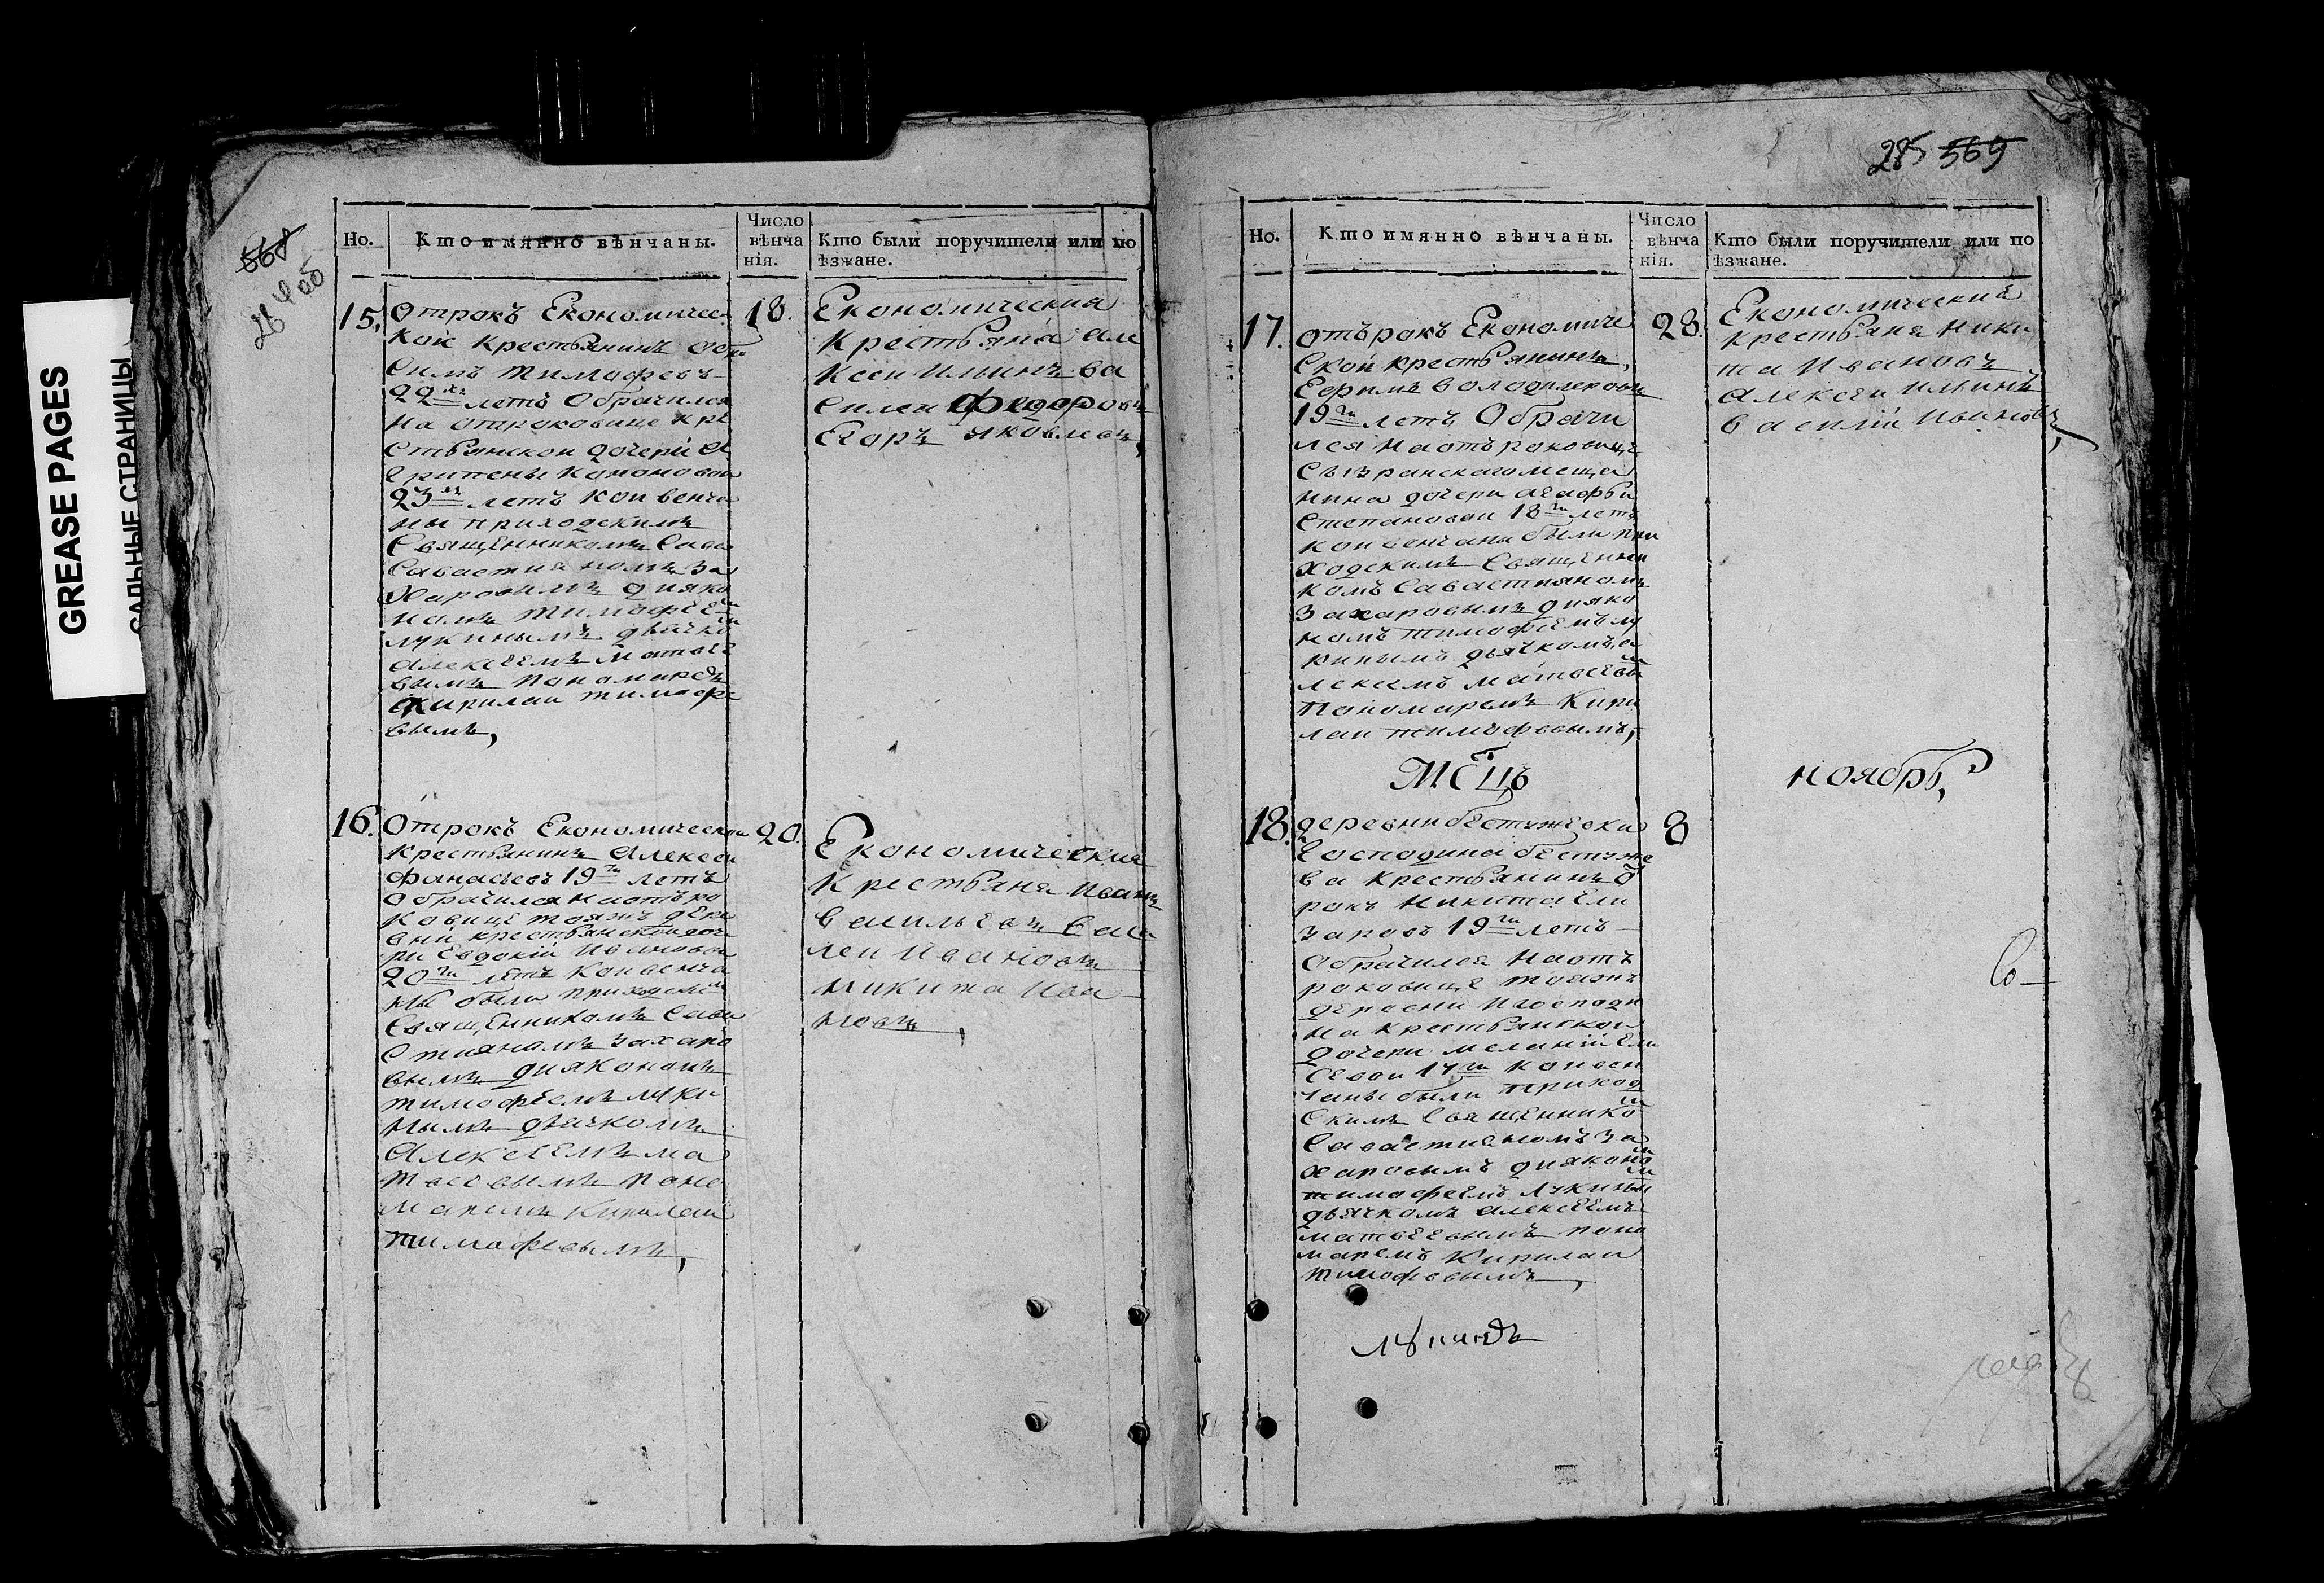 GREASE PAGES
САЛЬНЫЕ СТРАНИЦЫ
568
26 об
Но.
Кто имянно вѣнчаны.
Число вѣнча нія.
Кто были поручители или по ѣзжане.
15.
Отрокъ Економичес
кой крестьянинъ
симъ тимофеевъ
22хъ летъ Обрачился
на отроковице кре
стьянскои дочери а
грипены Кононовои
23хъ летъ кои венча
ны приходскимъ
священникомъ Сава
Савастианомъ за
харовымъ дияко
номъ тимофеем
лукинымъ дьячко
алексеемъ матвее
вымъ пономаремъ
кирилаи тимофе
вымъ,
18.
Економическия
крестьяна але
ксеи Ильинъ ва
силеи Федоровъ
Егоръ яковлевъ,
16.
Отрокъ Економическои
крестьянинъ Алексеи
фанасьевъ 19ти летъ
Обрачился наотъро
ковице тояжъ дере
вни крестьянскои доч
ри Евдокіи Ивановои
20ти летъ Кои венча
ны были приходским
священникомъ Сава
стияномъ захаро
вымъ диякономъ
тимофеемъ луки
нымъ дьячкомъ
Алексеемъ ма
твеевымъ поно
маремъ кирилаи
тимофевымъ,
20.
Економическия
крестьяне Иванъ
васильевъ васи
леи Ивановъ
никита Ива
новъ,
285 569
Но.
Кто имянно вѣнчаны.
Число вѣнча нія.
Кто были поручители или по ѣзжане.
17.
отърокъ Економиче
ской крестьянинъ,
Ефимъ володимеровъ
19ти летъ Обрачи
лся наотъроковице
сызранскаго меща
нина дочери агафьи
степановои 18ти летъ
кои венчаны были при
ходскимъ священни
комъ Савастияномъ
Захаровымъ дияко
номъ тимофеемъ лу
кинымъ дьячкомъ а
лексеемъ матвеевы
пономаремъ Кири
лаи тимофевымъ,
28.
Економическия
крестьяна Ники
та Ивановъ
алексеи ильинъ
василіи Ивановъ,
МСЦЪ
ноябрь,
18.
деревни бестужевки
господина бестуже
ва крестьянинъ о
рокъ Никита Ели
заровъ 19ти летъ
обрачился наотъ
роковице тояжъ
деревни и господи
на крестьянскои
дочери меланіи Ели
сеевои 17ти кои вен
чаны были приход
скимъ священнико
Савастияномъ за
харовымъ дияконо
тимофеемъ лукины
дьячкомъ алексеемъ
матвеевымъ поно
маремъ Кирилаи
тимофевымъ,
8